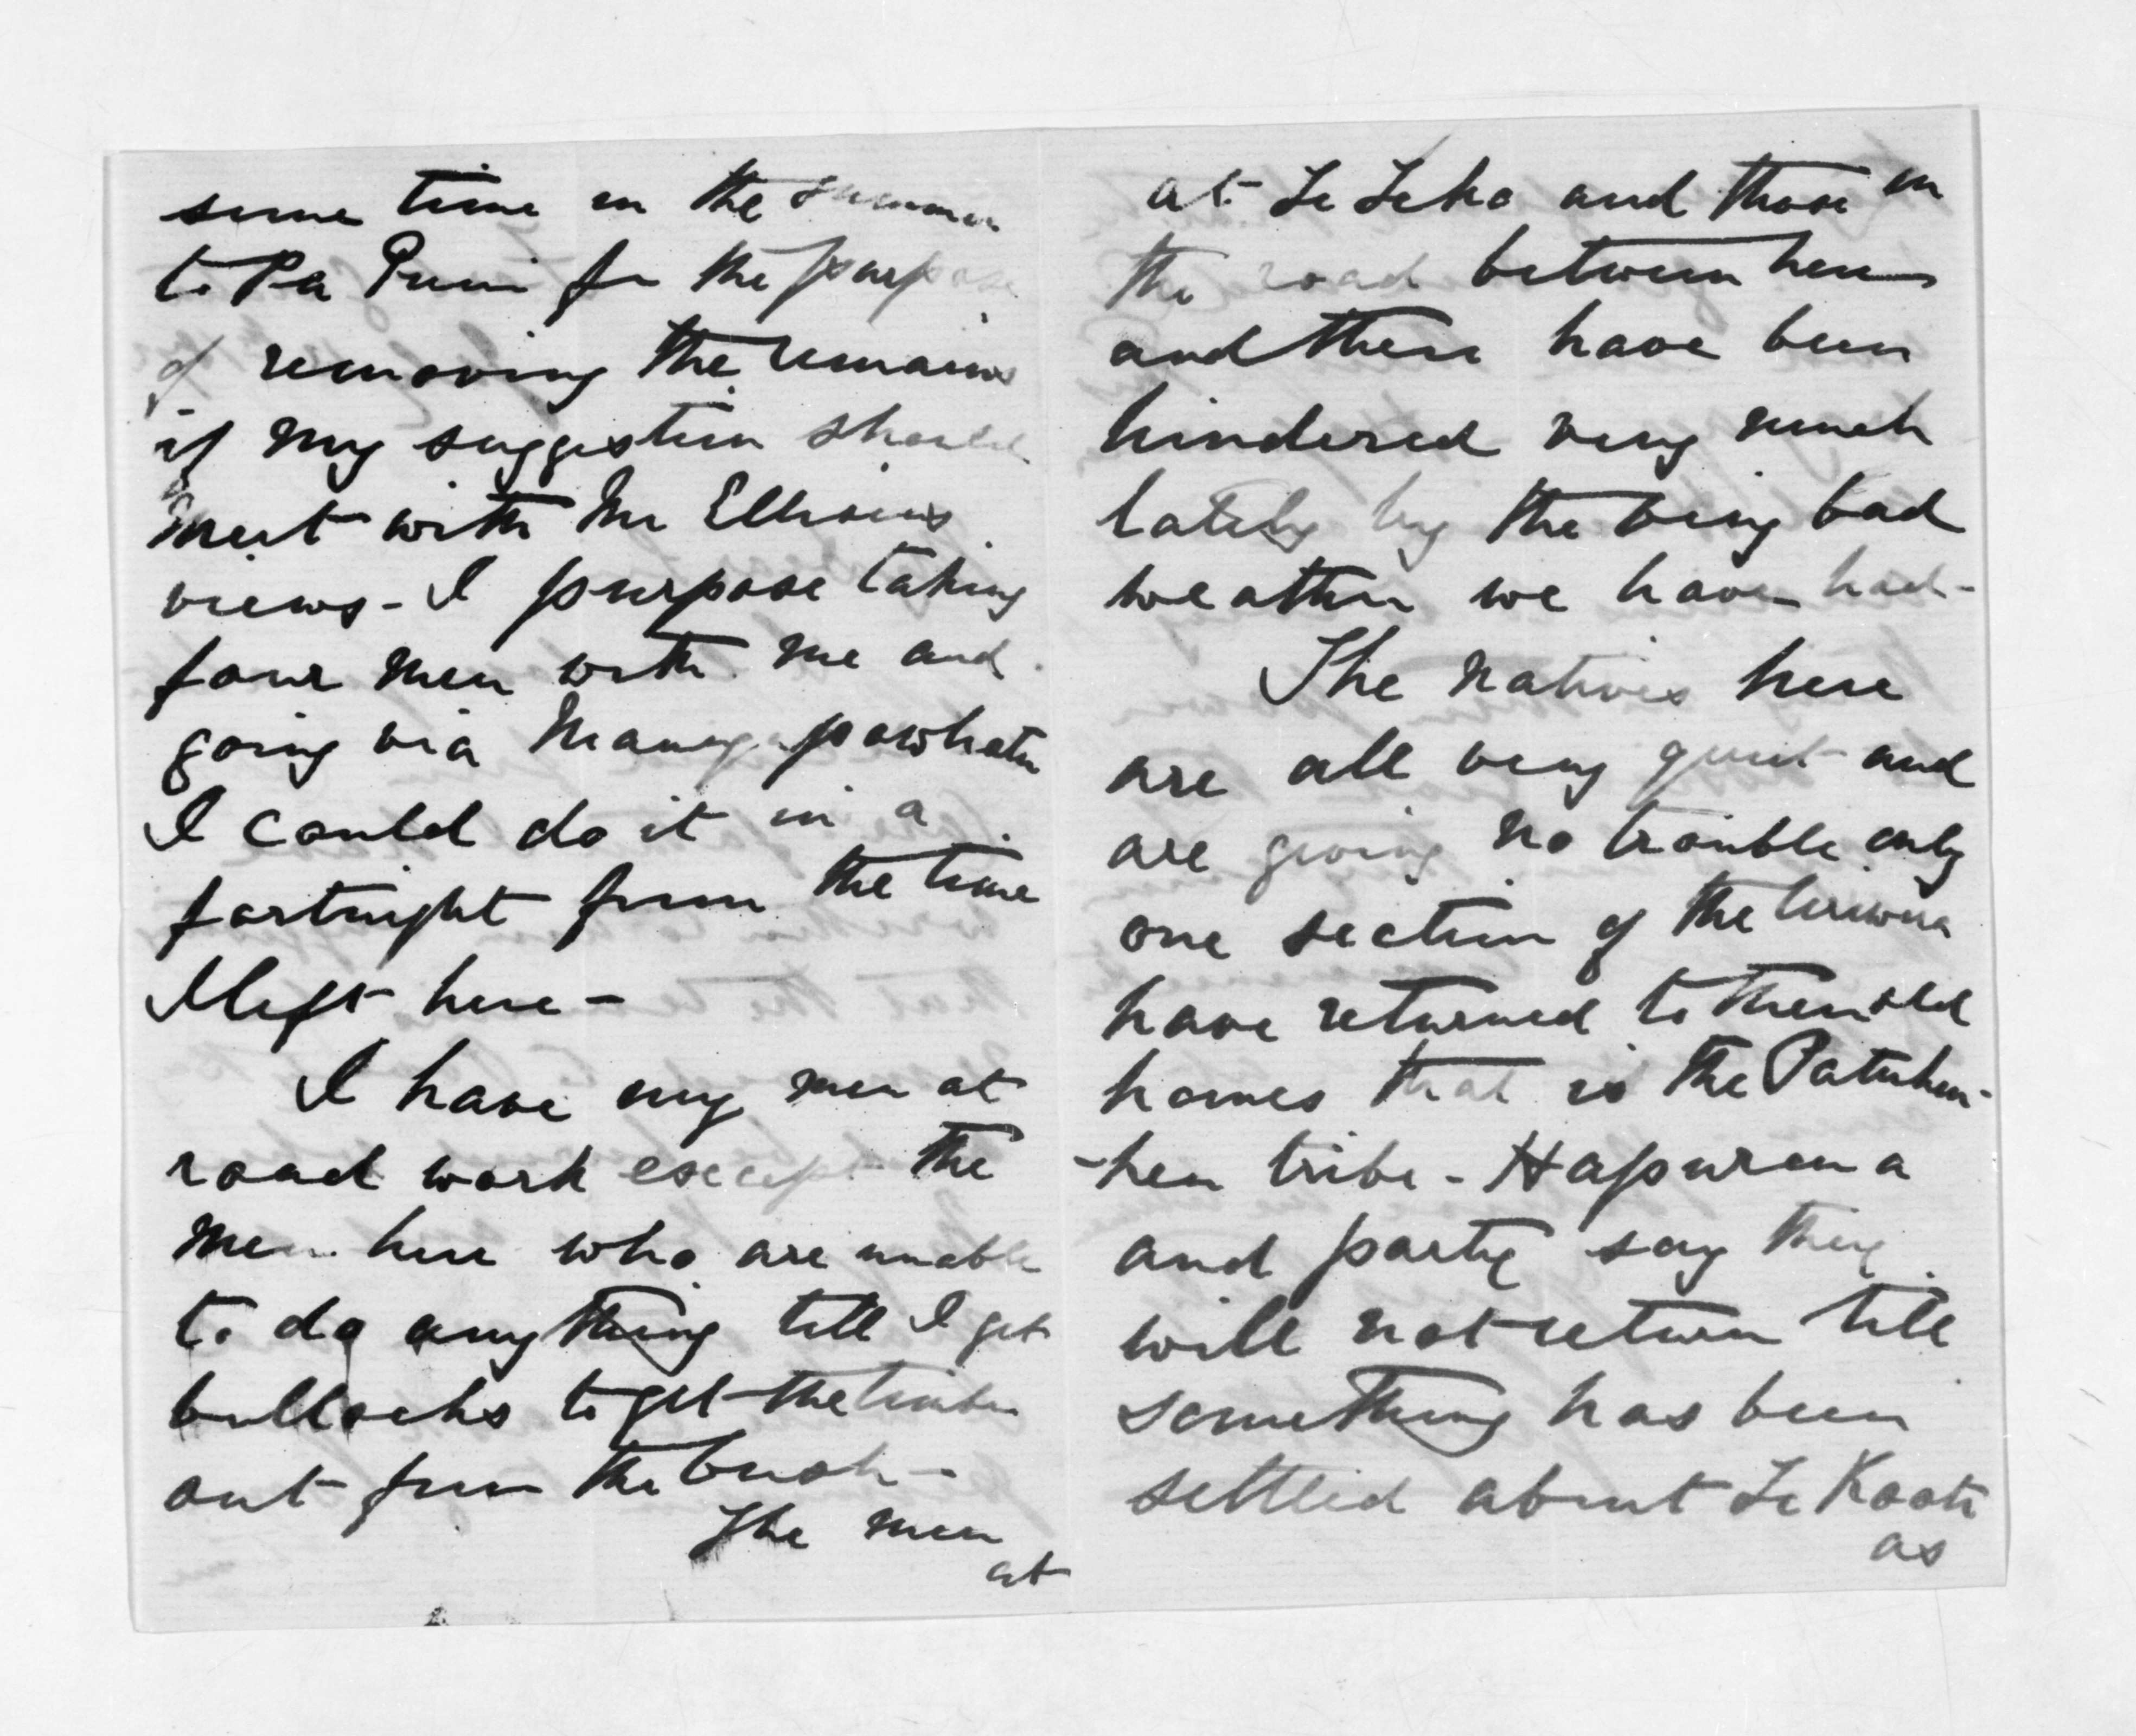 some time in the summer
to Pa Puni for the purpose
of removing the remains
if my suggestion should
meet with Mr Ellisons
views - I purpose taking
four men with me and
going via Maungapowhatu
I could do it in a
fortnight from the time
I left here -
I have my men at
road work except the
men here who are unable
to do anything till I get
bullocks to get the timber
out from the bush -
The men
at
at Te Teko and those on
the road between here
and there have been
hindered very much
lately by the very bad
weather we have had -
The natives here
are all very quiet and
are giving no trouble only
one section of the Uriwera
have returned to their old
homes that is the Patuheu-
-heu tribe - Hapurona
and party say they
will not return till
something has been
settled about Te Kooti
as